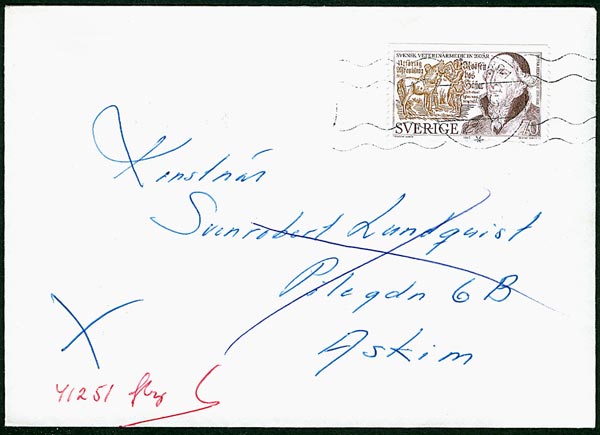 SVENSK VETERINÄRMEDICIN 200 ÅR
SVERIGE
Konstnär
Svenrobert Lundquist
Pilegdn 6 B
Askim
41251